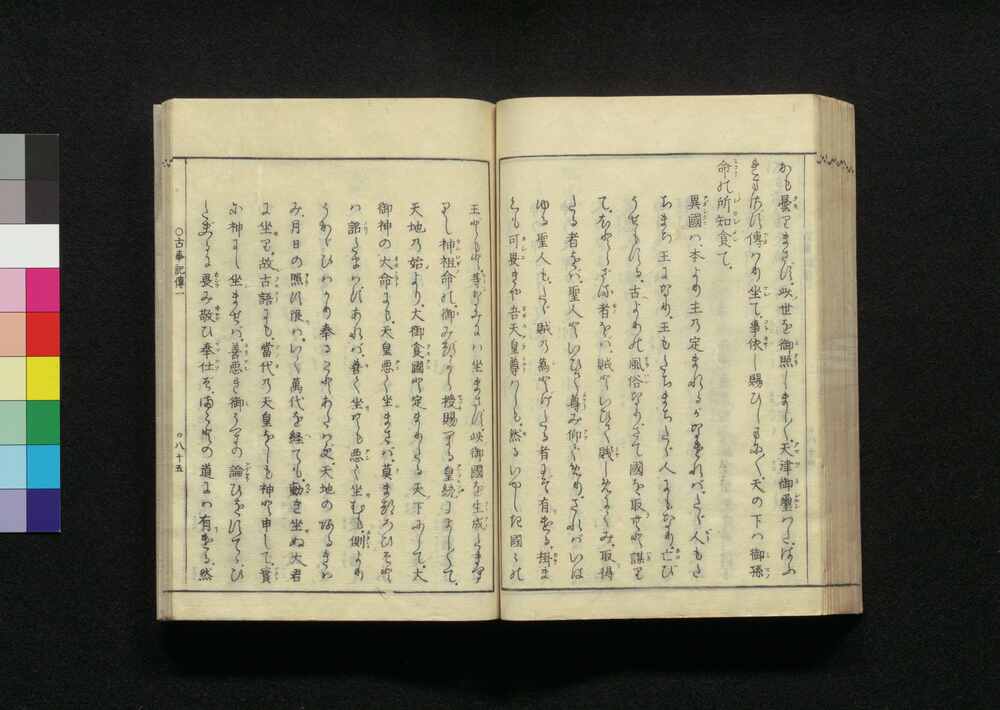 かも曇りまさず、此世を御照しましまし、天津御璽はた、はふ
れまさず傳はり坐て、事依し賜ひしまにまに、天の下は御孫
命の所知食て、
異國は、本より主の定まれるがなければ、たゞ人もた
ちまち王になり、王もたちまちたゞ人にもなり、亡び
うせもする、古よりの風俗なり、さて國を取むと謀り
て、えとらざる者をば、賊といひて賤しめにくみ、取得
たる者をば、聖人といひて尊み仰ぐめり、さればいは
ゆる聖人も、たゞ賊の為とげたる者にぞ有ける、掛ま
くも可畏きや吾天皇尊はしも、然るいやしき國々の
王どもと、等なみには坐まさず、此御國を生成たまへ
りし神祖命の、御みづから授賜へる皇統にましまして、
天地の始より、大御食國と定まりたる天下にして、大
御神の大命にも、天皇悪く坐まさば、莫まつろひそとは
詔たまはずあれば、善く坐むも悪く坐むも、側より
うかゞひはかり奉ることあたはず、天地のあるきは
み、月日の照す限は、いく萬代を経ても、動き坐ぬ大君
に坐り、故古語にも、當代の天皇をしも神と申して、實
に神にし坐ませば、善悪き御うへの論ひをすてゝ、ひ
たぶるに畏み敬ひ奉仕ぞ、まことの道には有ける、然
○古事記傳一
○八十五